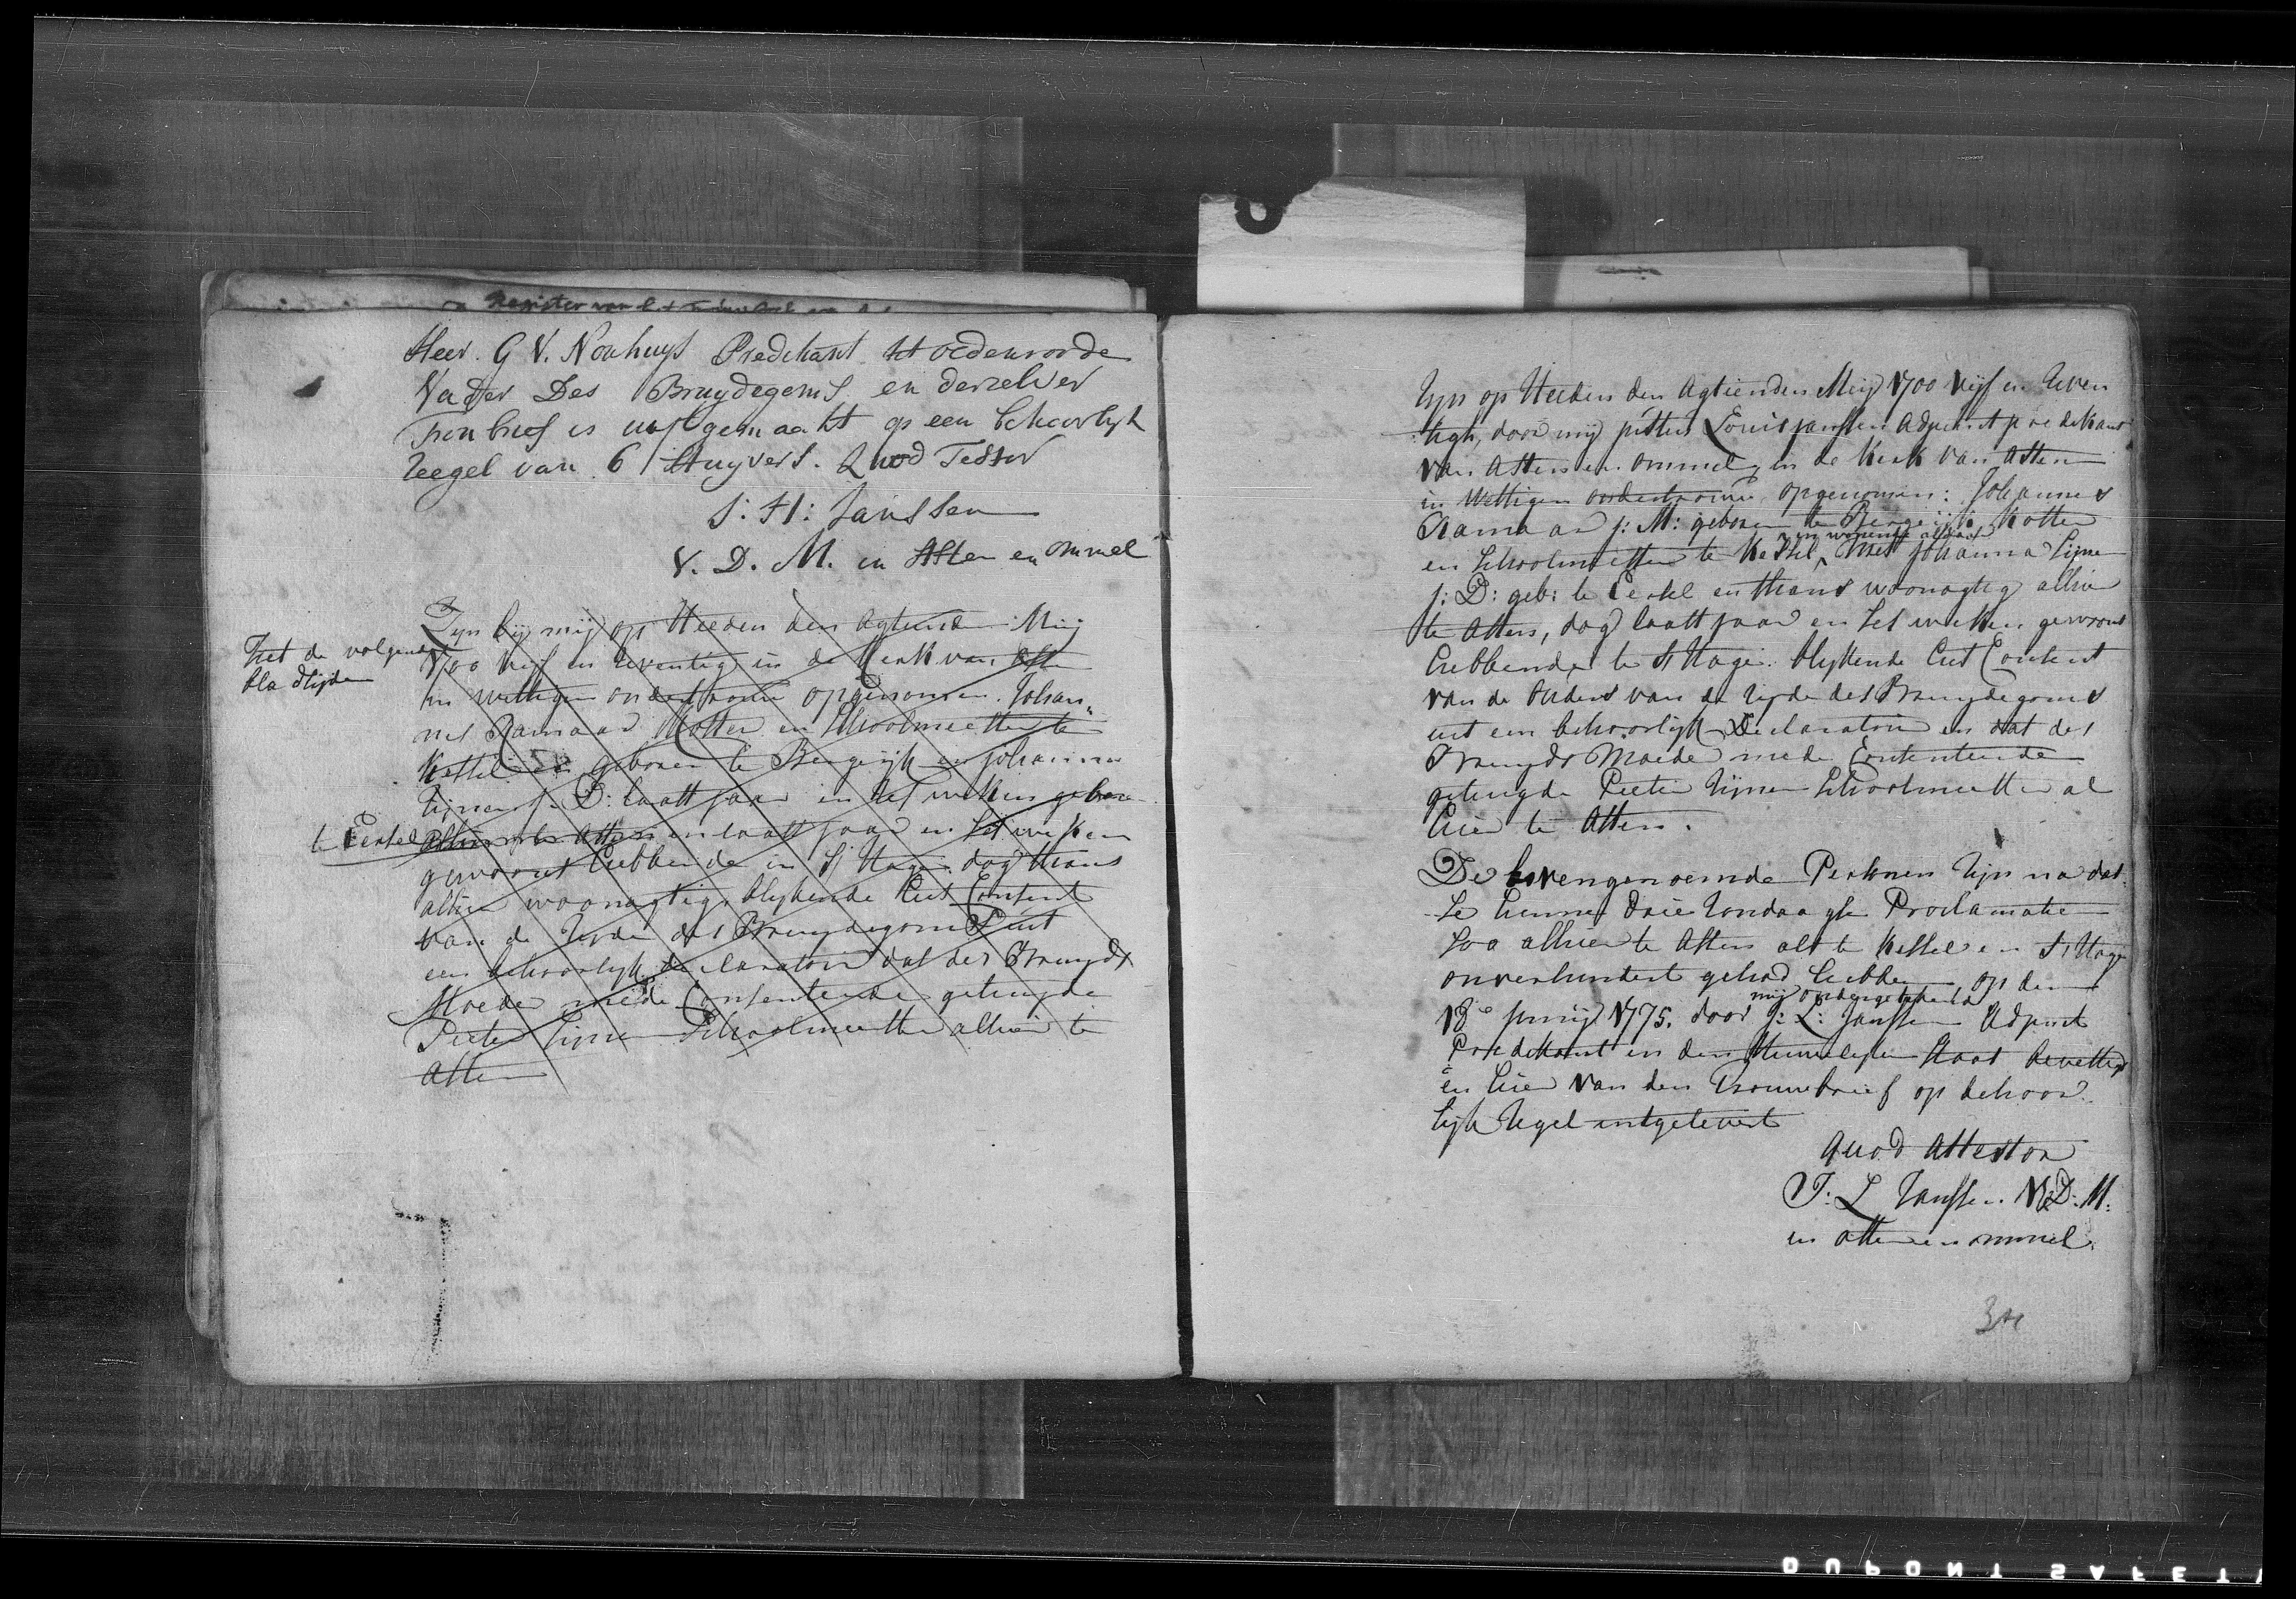 Heer. G V. Nouhuys Predikant tot oedenroode
Vader Des Bruydegoms en derzelver
Troubrief is uytgemaakt op een behoorlyk
Zeegel van 6 Stuyvers. Quod Testor
S: H: Janssen
V. D. M. in Asten en ommel
Zyn by mij op Heeden den Agtiende Mey
1700 vijf en zeventig in de Kerk van Asten
in wettigen ondertrouw opgenomen. Johan„
nes Ramaar Koster en Schoolmeester te
Kessel en geboren te Bergeijk en Johanna
Zijnen j: D: laatst jaar en ses weken gebore
alhier te Asten en laatst jaar en ses weken
gewoont hebbende in S Hage. dog thans
alhier woonagtig, blijkende het Consent
van de Zijde des Bruydegoms uit
een behoorlyk declaratoir dat des Bruyds
Moeder mede Consenteerde getuygde
Pieter Zijnen Schoolmeester alhier te
Asten
Ziet de volgende
bladzijde
te Eersel
Zyn op Heeden den Agtienden Meij 1700 vijf en Zeven
tigh, door mij Louis Janssen Adjunct predikant
van Asten en ommel, in de Kerk van Asten
in Wettigen ondertrouw, opgenomen: Johannes
Ramaar j: M: geboren te Bergeijk, Koster
en Schoolmeester te Kessel, met Johanna Zijnen
en wonende aldaar
j: D: geb: te Eersel en thans woonagtig alhier
te Asten, dog laatst jaar en ses weken gewoont
hebbende te S Hage. blykende het Consent
van de Ouders van de zijde des Bruydegoms
uit een behoorlyk Declaratoir en dat des
Bruyds Moeder mede Consenteerde
getuygde Pieter Zijnen Schoolmeester al
hier te Asten.
De bovengenoemde Persoonen Zijn na dat
se hunne drie Zondaagse Proclamatien
soo alhier te Asten als te Kessel en S Hage
onverhindert gehad hebben op den
18e Junij 1775. door J: L: Janssen Adjunct
mij ondergetekend
Predikant in den Huwelyken Staat bevestigd
en hier van den Trouwbrief op behoor
lijk Zegel uitgelevert
Quod Attestor
J: L Janssen V: D: M:
in Asten en ommel.
34
DUPONT SAFETY